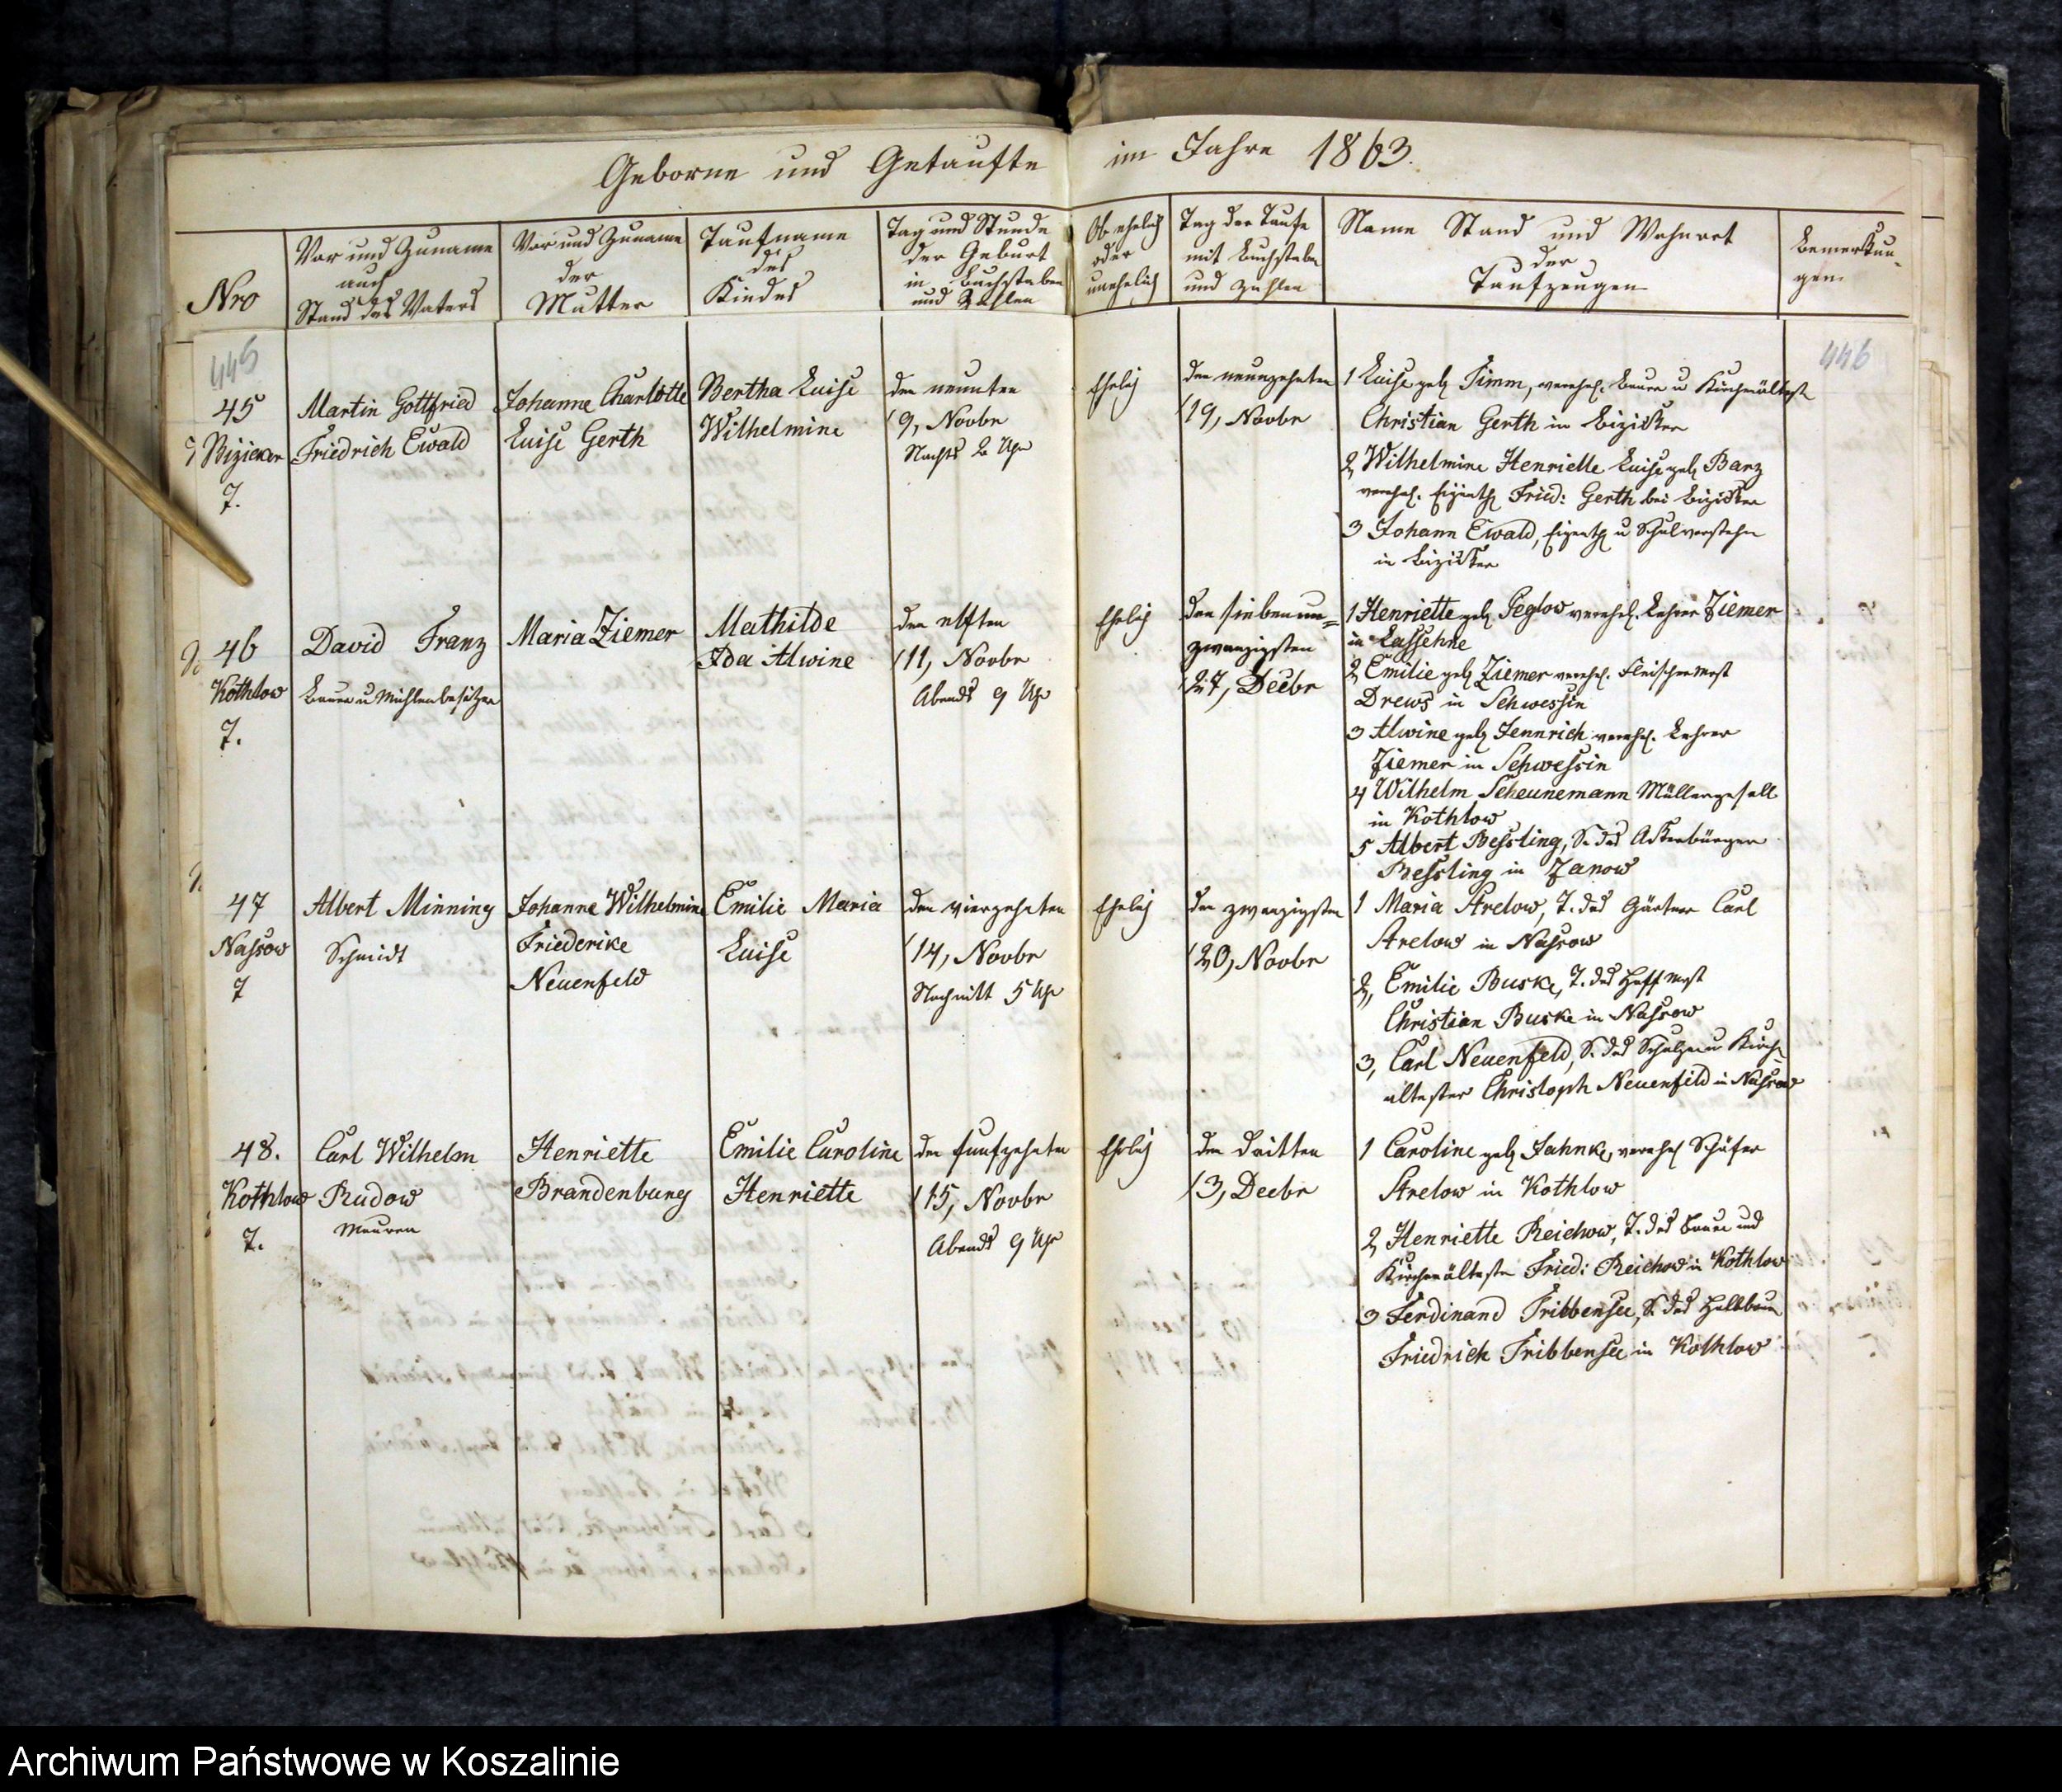 Geborne und Getaufte im Jahre 1863.
Nro
Vor und Zuname
auch
Stand des Vaters
Vor und Zuname
der
Mutter
Taufname
des
Kindes
Tag und Stunde
der Geburt
in Buchstaben
und Zahlen
Ob ehelich
oder
unehelich
Tag der Taufe
mit Buchstaben
und Zahlen
Name Stand und Wohnort
der
Taufzeugen
Bemerkun-
gen
445
446
45
Bizicker
T.
Martin Gottfried
Friedrich Ewald
Johanne Charlotte
Luise Gerth
Bertha Luise
Wilhelmine
den neunten
(9, Novbr
Nachts 2 Uhr
Ehelich
den neunzehnten
(19, Novbr
1 Luise geb Timm, verehel. Bauer u Kirchenältest
Christian Gerth in Bizicker
2, Wilhelmine Henriette Luise geb Banz
verehel. Eigenth Fried: Gerth bei Bizicker
3 Johann Ewald, Eigenth u Schulvorsteher
in Bizicker
46
Kothlow
T.
David Franz
Bauer u Mühlenbesitzer
Maria Ziemer
Mathilde
Ida Alwine
den elften
(11, Novbr
Abends 9 Uhr
Ehelich
den siebenun=
zwanzigsten
(27, Decbr
1 Henriette geb Peglow verehel. Lehrer Ziemer
in Lassehne
2, Emilie geb Ziemer verehel. Fleischermst
Drews in Schwessin
3 Alwine geb Jennrich verehel. Lehrer
Ziemer in Schwessin
4 Wilhelm Scheunemann Müllergesell
in Kothlow
5 Albert Bessling, S. des Ackerbürger
Bessling in Zanow
47
Nassow
T
Albert Minning
Schmidt
Johanne Wilhelmine
Friederike
Neuenfeld
Emilie Maria
Luise
den vierzehnten
(14, Novbr
Nachmitt 5 Uhr
Ehelich
den zwanzigsten
(20, Novbr
1 Maria Strelow, T. des Gärtner Carl
Strelow in Nassow
2, Emilie Buske, T. des Hoffmst
Christian Buske in Nassow
3, Carl Neuenfeld, S. des Schulze u Kirch
ältester Christoph Neuenfeld in Nassow
48.
Kothlow
T.
Carl Wilhelm
Rudow
Maurer
Henriette
Brandenburg
Emilie Caroline
Henriette
den funfzehnten
(15, Novbr
Abends 9 Uhr
Ehelich
den dritten
(3, Decbr
1 Caroline geb Jahnke, verehel Schäfer
Strelow in Kothlow
2, Henriette Reichow, T. des Bauer und
Kirchenälteste Fried: Reichow in Kothlow
3 Ferdinand Tribbensee, S. des Halbbauer
Friedrich Tribbensee in Kothlow
Archiwum Państwowe w Koszalinie